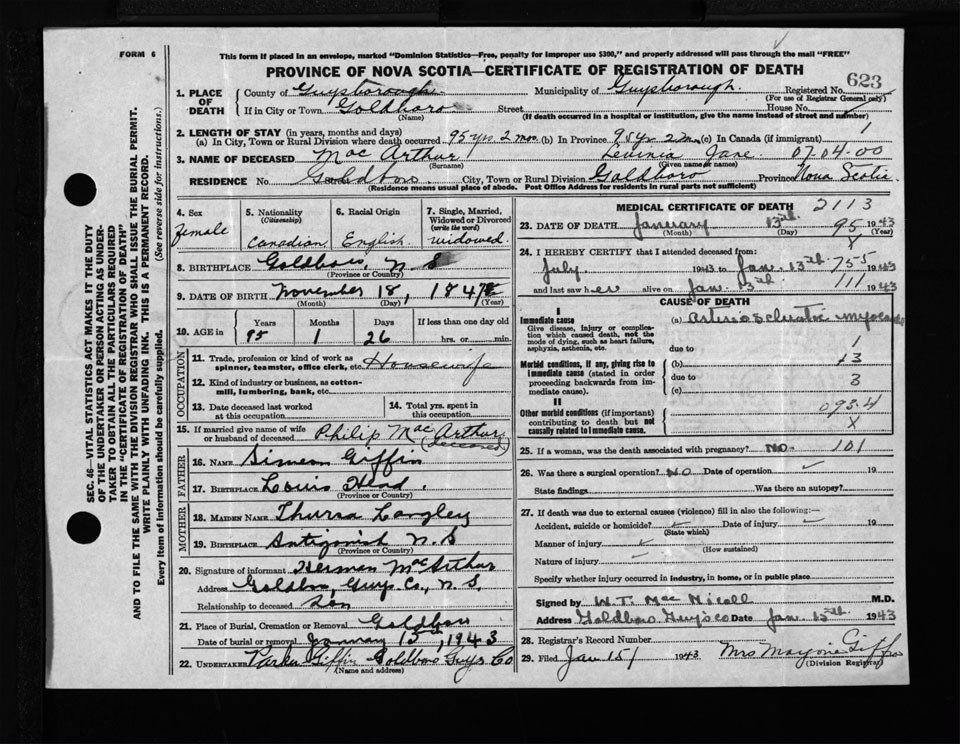 FORM 6
This form if placed in an envelope, marked "Dominion Statistics—Free, penalty for improper use $300," and properly addressed will pass through the mail "FREE"
PROVINCE OF NOVA SCOTIA—CERTIFICATE OF REGISTRATION OF DEATH
623
1. PLACE OF DEATH
County of Guysborough Municipality of Guysborough. Registered No.
(For use of Registrar General only)
If in City or Town Goldboro Street House No.
(Name) (If death occurred in a hospital or institution, give the name instead of street and number)
2. LENGTH OF STAY (in years, months and days)
(a) In City, Town or Rural Division where death occurred 95 yrs 2 mos. (b) In Province 95 yr 2 m. (c) In Canada (if immigrant) 1
3. NAME OF DECEASED Mac Arthur Levinia Jane. 07-04-00
(Surname) (Given name or names)
RESIDENCE No. Goldboro Street City, Town or Rural Division Goldboro Province Nova Scotia
(Residence means usual place of abode. Post Office Address for residents in rural parts not sufficient)
4. Sex Female
5. Nationality (Citizenship) Canadian
6. Racial Origin English
7. Single, Married, Widowed or Divorced (write the word) widowed.
8. BIRTHPLACE Goldboro, N S
(Province or Country)
9. DATE OF BIRTH November 18, 1847
(Month) (Day) (Year)
10. AGE in Years Months Days If less than one day old
95 1 26 hrs. or min.
OCCUPATION
11. Trade, profession or kind of work as spinner, teamster, office clerk, etc. Housewife
12. Kind of industry or business, as cotton-mill, lumbering, bank, etc.
13. Date deceased last worked at this occupation
14. Total yrs. spent in this occupation
15. If married give name of wife or husband of deceased Philip Mac Arthur
(deceased)
FATHER
16. NAME Simeon Giffin
17. BIRTHPLACE Louis Head.
(Province or Country)
MOTHER
18. MAIDEN NAME Thursa Langley
19. BIRTHPLACE Antigonish N. S
(Province or Country)
20. Signature of informant Herman MacArthur
Address Goldboro Guys. Co., N. S.
Relationship to deceased Son
21. Place of Burial, Cremation or Removal Goldboro
Date of burial or removal January 15th, 1943
22. Undertaker Parker Giffin Goldboro Guys Co
(Name and address)
MEDICAL CERTIFICATE OF DEATH 2113
23. DATE OF DEATH January 13th. 95 1943
(Month) (Day) (Year)
X
24. I HEREBY CERTIFY that I attended deceased from:
July 1943 to Jan. 13th 755 1943
and last saw her alive on Jan. 13th 111 1943
CAUSE OF DEATH
I
Immediate cause
Give disease, injury or complication which caused death, not the mode of dying, such as heart failure, asphyxia, asthenia, etc.
(a) Arteriosclerotic
due to 1
Morbid conditions, if any, giving rise to immediate cause (stated in order proceeding backwards from immediate cause).
(b) +3
due to 3
(c)
II
Other morbid conditions (if important) contributing to death but not causally related to immediate cause.
093.4
X
25. If a woman, was the death associated with pregnancy? No. 101
26. Was there a surgical operation? No Date of operation 19
State findings Was there an autopsy?
27. If death was due to external causes (violence) fill in also the following:—
Accident, suicide or homicide? Date of injury 19
(State which)
Manner of injury
(How sustained)
Nature of injury
Specify whether injury occurred in industry, in home, or in public place
Signed by W. T. Mac Nicoll M.D.
Address Goldboro Guys co Date Jan. 15th. 1943
28. Registrar's Record Number
29. Filed Jan 15/ 1943 Mrs Marjorie Giffin
(Division Registrar)
SEC. 46—VITAL STATISTICS ACT MAKES IT THE DUTY
OF THE UNDERTAKER OR PERSON ACTING AS UNDER-
TAKER TO OBTAIN ALL THE PARTICULARS REQUIRED
IN THE "CERTIFICATE OF REGISTRATION OF DEATH"
AND TO FILE THE SAME WITH THE DIVISION REGISTRAR WHO SHALL ISSUE THE BURIAL PERMIT.
WRITE PLAINLY WITH UNFADING INK. THIS IS A PERMANENT RECORD.
Every item of information should be carefully supplied. (See reverse side for instructions.)